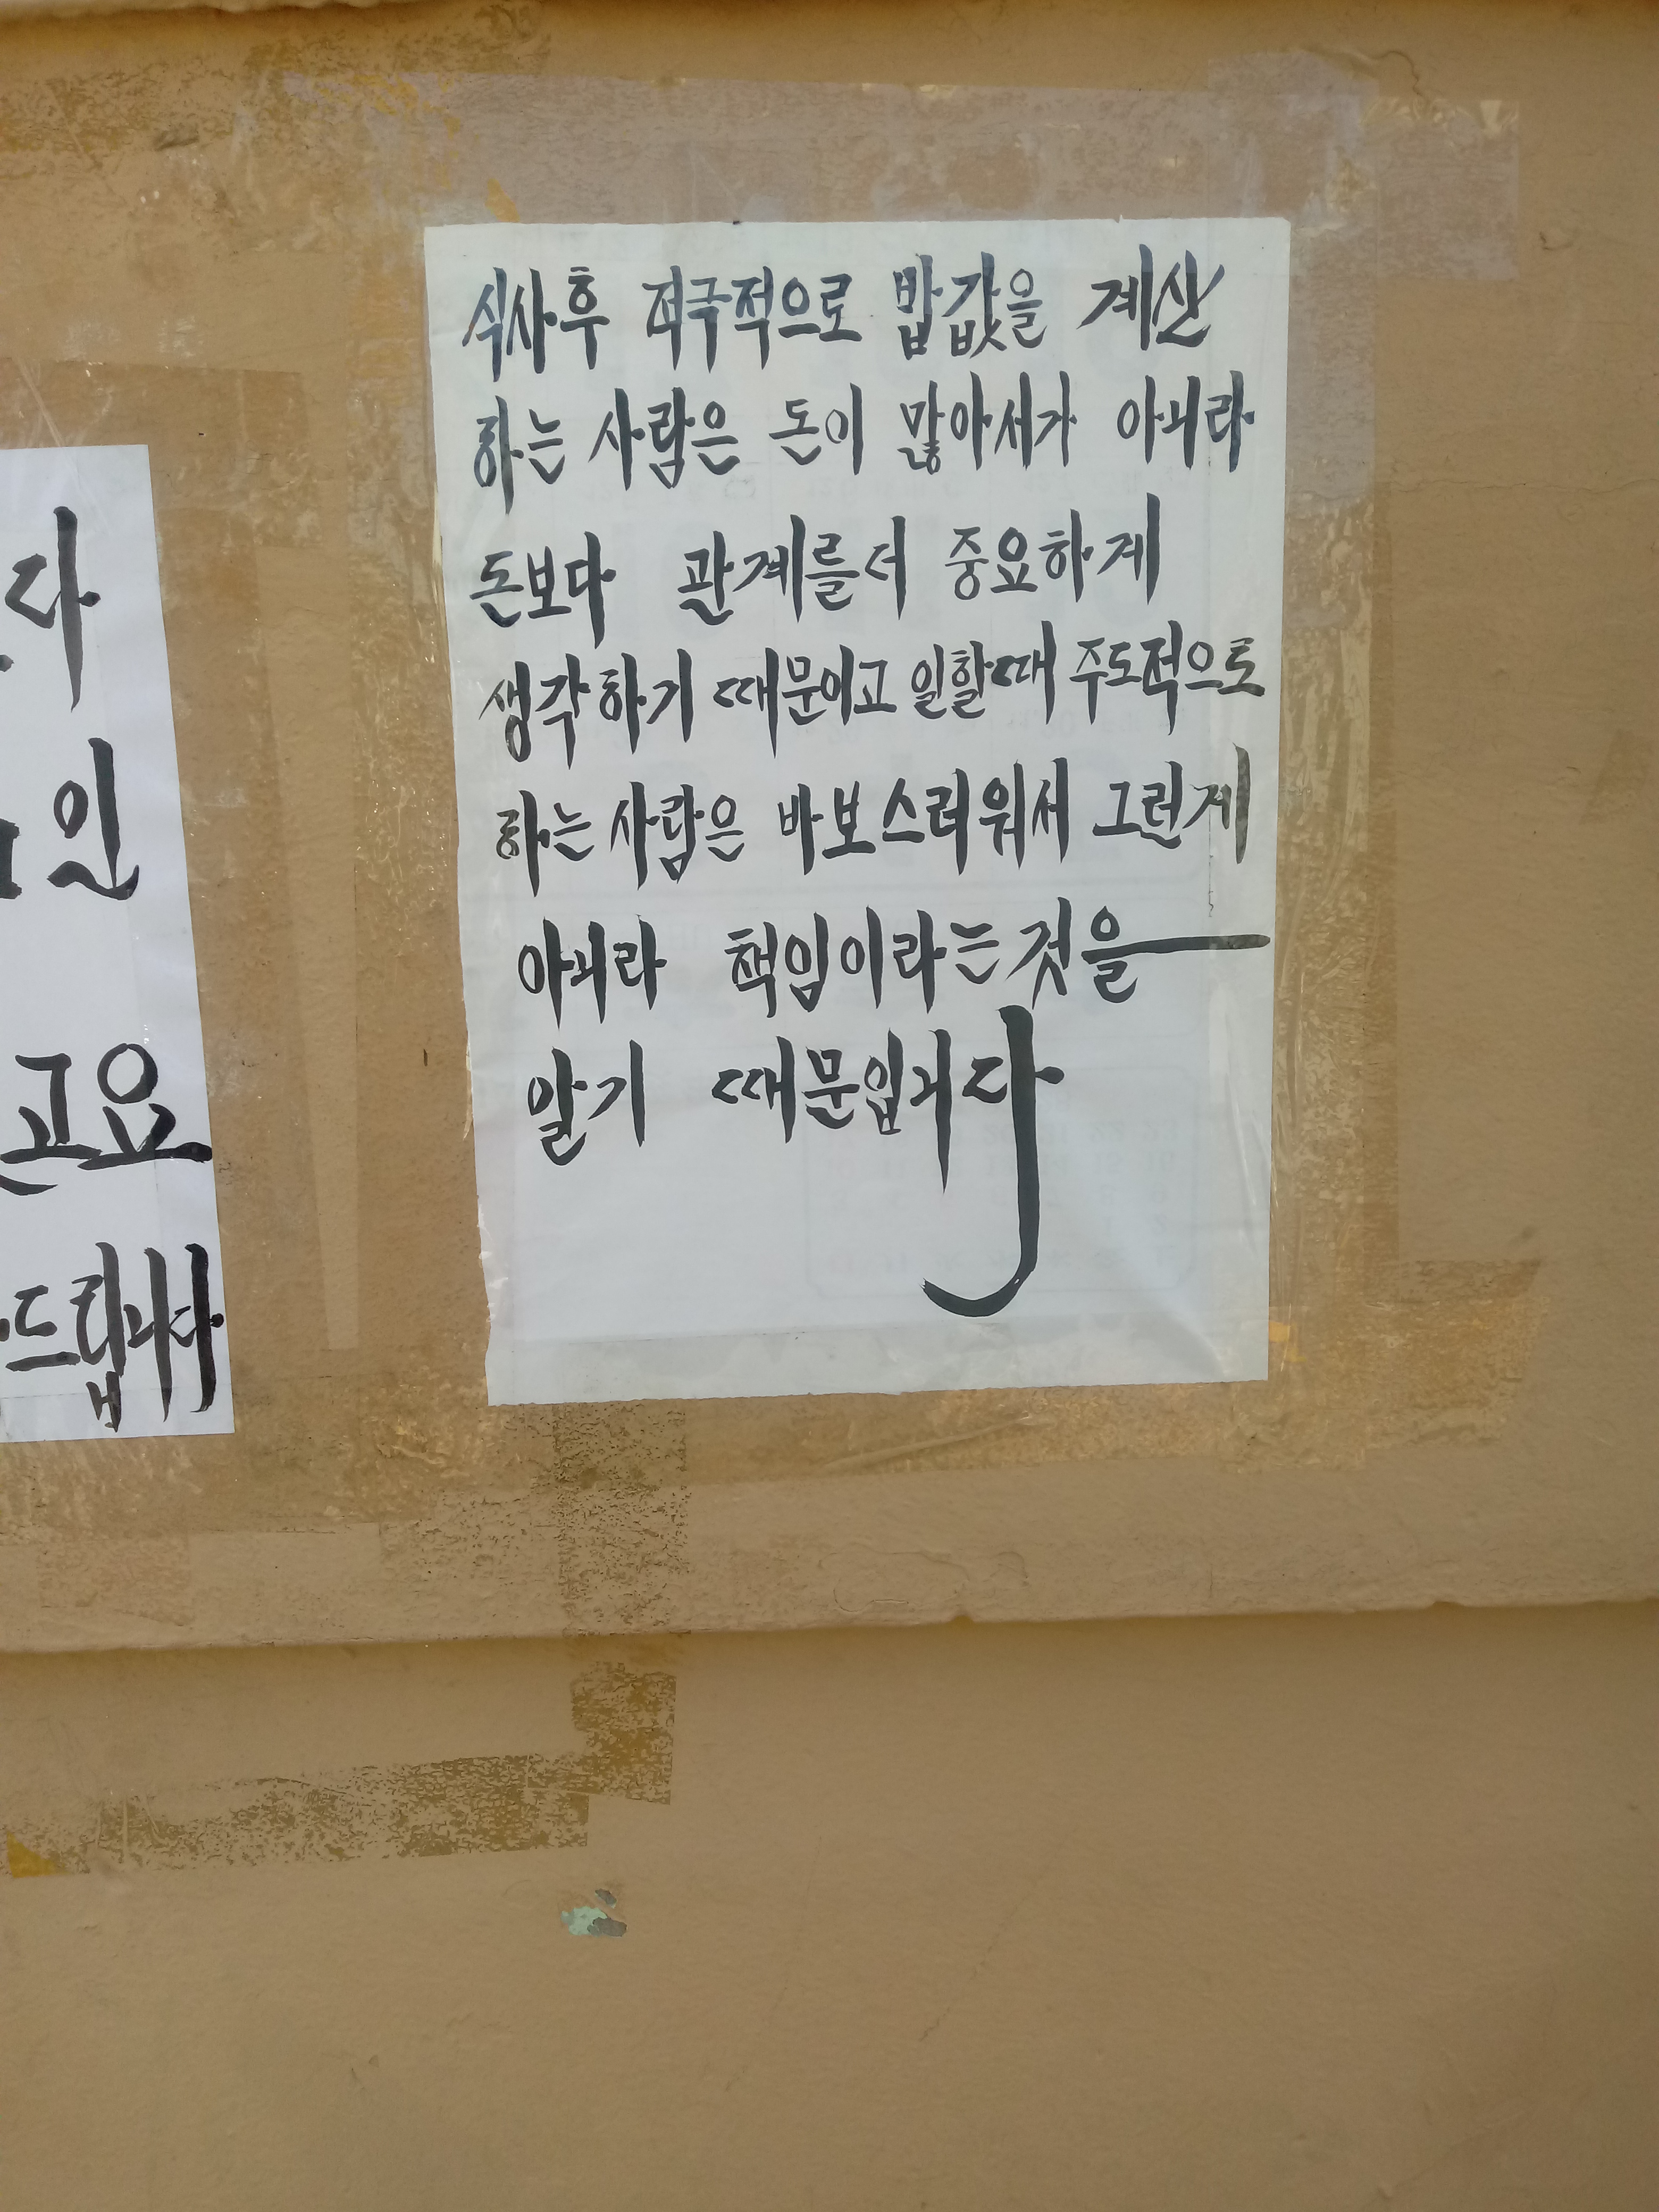 식사후 적극적으로 밥값을 계산
하는 사람은 돈이 많아서가 아니라
돈보다 관계를 더 중요하게
생각하기 때문이고 일할때 주도적으로
하는 사람은 바보스러워서 그런게
아니라 책임이라는 것을
알기 때문입니다
다
인
고요
드립니다